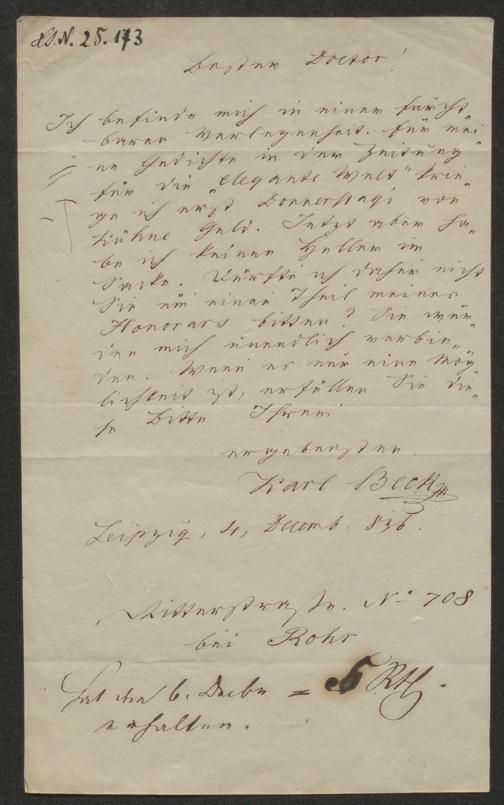 H.I.N. 25.173
Bester Doctor!
Ich befinde mich in einer furcht„
baren Verlegenheit. Für mei„
ne Gedichte in der Zeitung
für die „elegante Welt“ krie„
ge ich erst Donnerstags von
Kühne Geld. Jetzt aber ha„
be ich keinen Heller im
Sacke. Dürfte ich daher nicht
Sie um einen Theil meines
Honorars bitten? Sie wür„
den mich unendlich verbin„
den. Wenn es nur eine Mög„
lichkeit ist, erfüllen Sie die„
se Bitte Ihrem
ergebensten
Karl Beck
Leipzig, 4, Decemb. 836.
Ritterstraße. No 708
bei Rohr
Hat den 6. Decbr = 5 Rth.
erhalten.